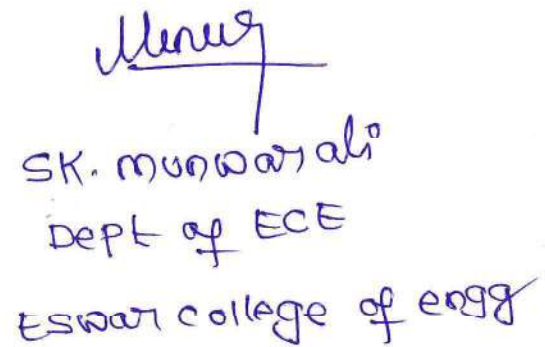 SK. munwar ali
Dept of ECE
Eswar college of engg